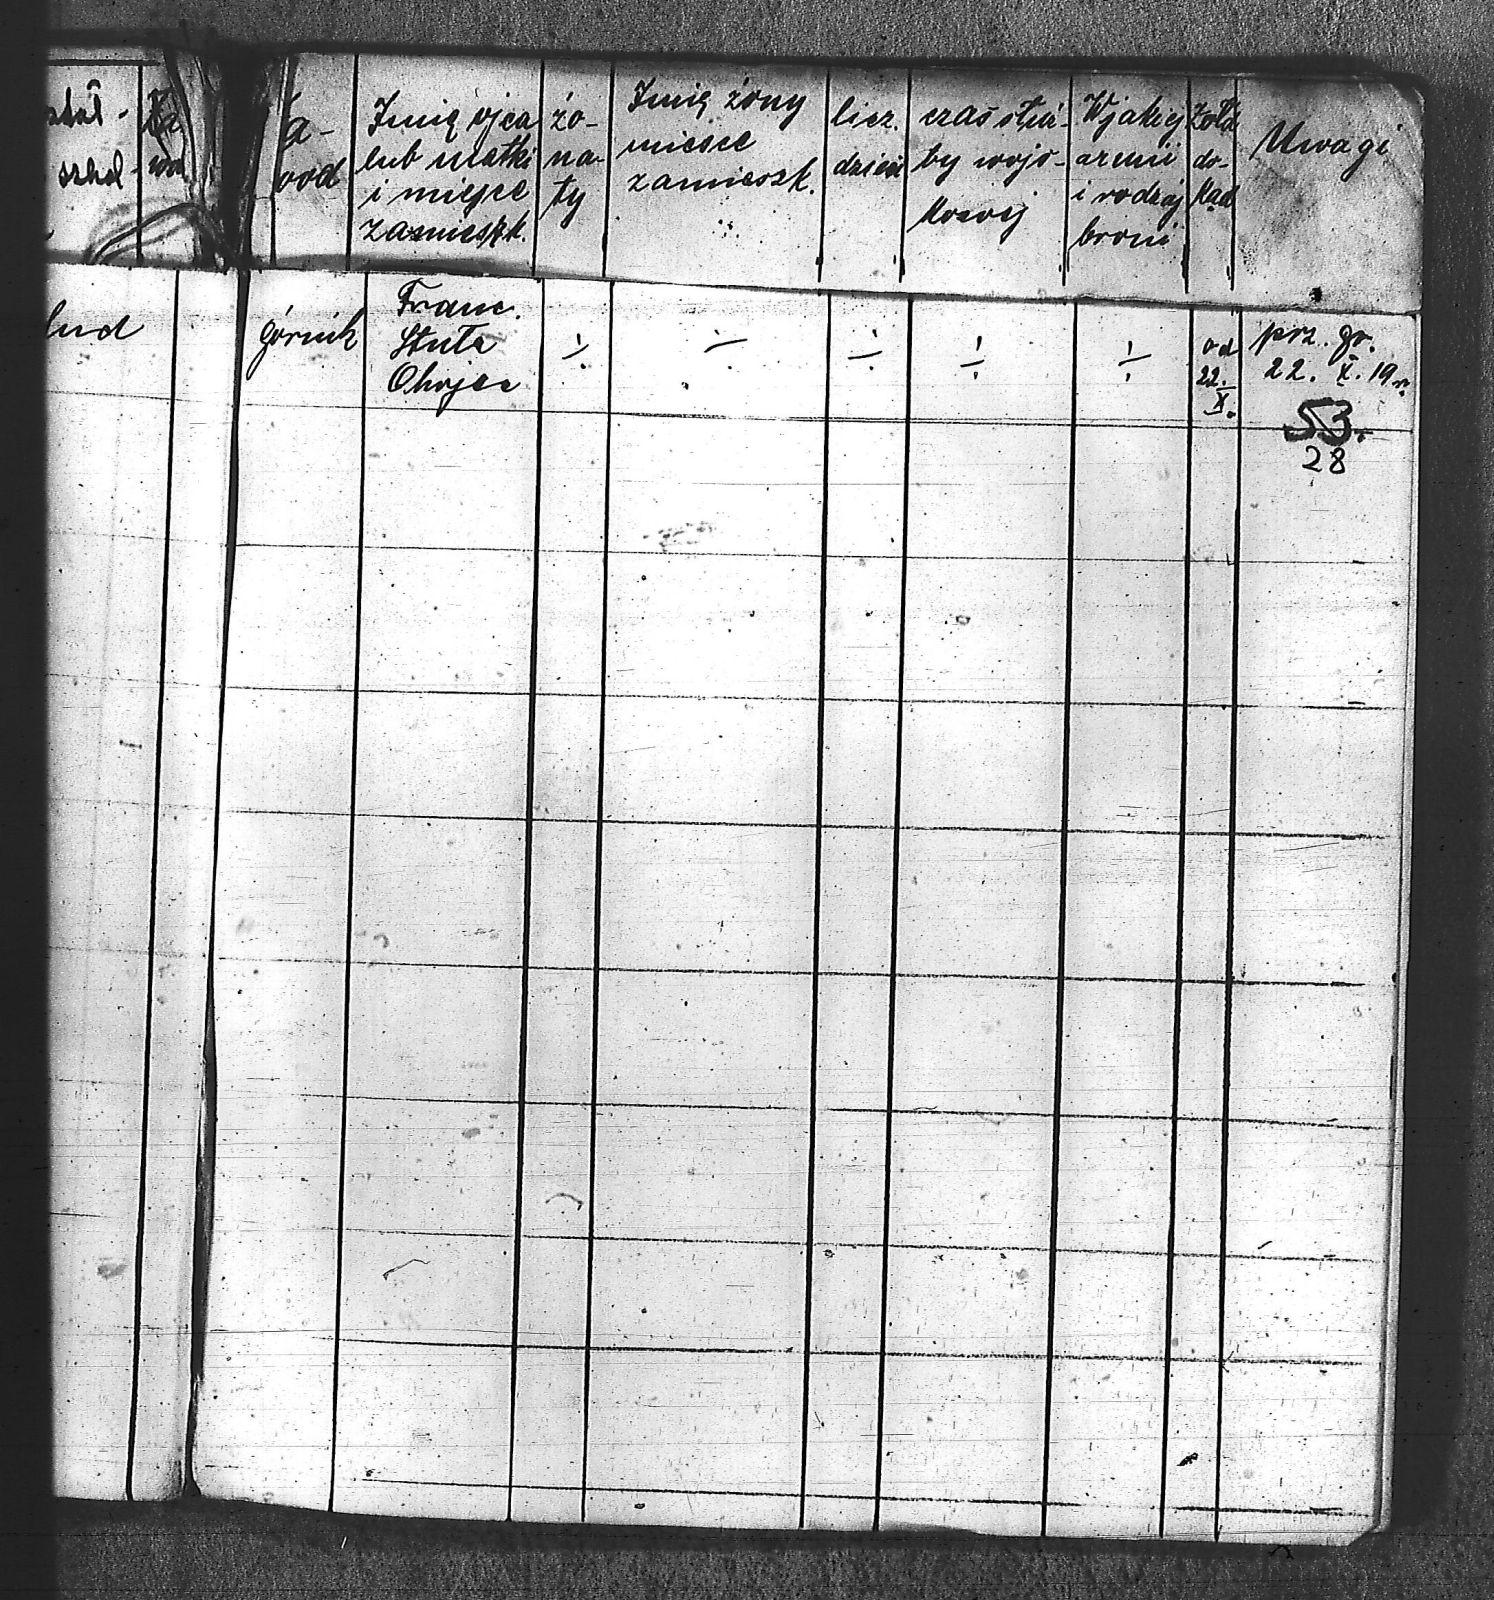 szkol-
Za
wód
a-
wod
Imię ojca
lub matki
i miejsc
zamieszk.
żo-
na-
ty
Imię żony
miesce
zamieszk.
licz.
dzieci
czas służ-
by wojs-
kowej
W jakiej
armii
i rodzaj
broni
Żołd
do-
kąd
Uwagi
lud
górnik
Franc.
Stuta
Chojec
÷
÷
÷
÷
÷
od
22.
X.
prz. gr.
22. X. 19 r.
53.
28